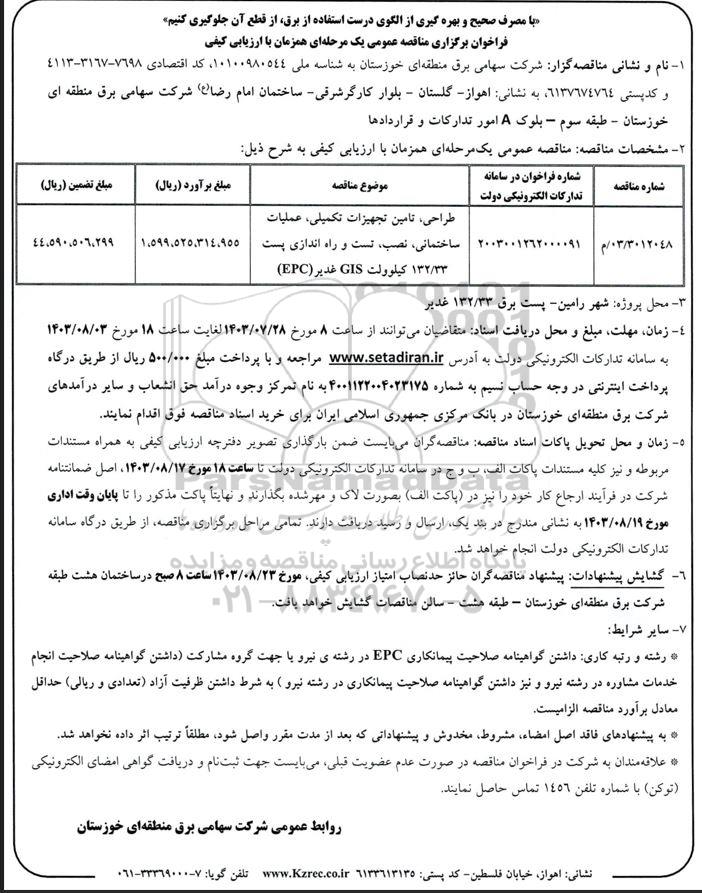 «با مصرف صحیح و بهره گیری از الگوی درست استفاده از برق، از قطع آن جلوگیری کنیم»
فراخوان برگزاری مناقصه عمومی یک مرحله‌ای همزمان با ارزیابی کیفی
۱- نام و نشانی مناقصه‌گزار: شرکت سهامی برق منطقه‌ای خوزستان به شناسه ملی ۱۰۱۰۰۹۸۰۵۴۴، کد اقتصادی ۷۶۹۸-۳۱۶۷-۴۱۱۳
و کدپستی ۶۱۳۷۶۷۴۷۶۴، به نشانی: اهواز- گلستان - بلوار کارگرشرقی- ساختمان امام رضا(ع) شرکت سهامی برق منطقه ای
خوزستان - طبقه سوم – بلوک A امور تدارکات و قراردادها
۲- مشخصات مناقصه: مناقصه عمومی یک‌مرحله‌ای همزمان با ارزیابی کیفی به شرح ذیل:
شماره مناقصه
شماره فراخوان در سامانه تدارکات الکترونیکی دولت
موضوع مناقصه
مبلغ برآورد (ریال)
مبلغ تضمین (ریال)
۰۳/۳۰۱۲۰۴۸/م
۲۰۰۳۰۰۱۲۶۲۰۰۰۰۹۱
طراحی، تامین تجهیزات تکمیلی، عملیات
ساختمانی، نصب، تست و راه اندازی پست
۱۳۲/۳۳ کیلوولت GIS غدیر (EPC)
۱،۵۹۹،۵۲۵،۳۱۴،۹۵۵
۴۴،۵۹۰،۵۰۶،۲۹۹
۳- محل پروژه: شهر رامین- پست برق ۱۳۲/۳۳ غدیر
۴- زمان، مهلت، مبلغ و محل دریافت اسناد: متقاضیان می‌توانند از ساعت ۸ مورخ ۱۴۰۳/۰۷/۲۸ لغایت ساعت ۱۸ مورخ ۱۴۰۳/۰۸/۰۳
به سامانه تدارکات الکترونیکی دولت به آدرس www.setadiran.ir مراجعه و با پرداخت مبلغ ۵۰۰/۰۰۰ ریال از طریق درگاه
پرداخت اینترنتی در وجه حساب نسیم به شماره ۴۰۰۱۱۲۲۰۰۴۰۲۳۱۷۵ به نام تمرکز وجوه درآمد حق انشعاب و سایر درآمدهای
شرکت برق منطقه‌ای خوزستان در بانک مرکزی جمهوری اسلامی ایران برای خرید اسناد مناقصه فوق اقدام نمایند.
۵- زمان و محل تحویل پاکات اسناد مناقصه: مناقصه‌گران می‌بایست ضمن بارگذاری تصویر دفترچه ارزیابی کیفی به همراه مستندات
مربوطه و نیز کلیه مستندات پاکات الف، ب و ج در سامانه تدارکات الکترونیکی دولت تا ساعت ۱۸ مورخ ۱۴۰۳/۰۸/۱۷، اصل ضمانتنامه
شرکت در فرآیند ارجاع کار خود را نیز در (پاکت الف) بصورت لاک و مهرشده بگذارند و نهایتاً پاکت مذکور را تا پایان وقت اداری
مورخ ۱۴۰۳/۰۸/۱۹ به نشانی مندرج در بند یک، ارسال و رسید دریافت دارند. تمامی مراحل برگزاری مناقصه، از طریق درگاه سامانه
تدارکات الکترونیکی دولت انجام خواهد شد.
۶- گشایش پیشنهادات: پیشنهاد مناقصه‌گران حائز حدنصاب امتیاز ارزیابی کیفی، مورخ ۱۴۰۳/۰۸/۲۳ ساعت ۸ صبح درساختمان هشت طبقه
شرکت برق منطقه‌ای خوزستان – طبقه هشت - سالن مناقصات گشایش خواهد یافت.
۷- سایر شرایط:
* رشته و رتبه کاری: داشتن گواهینامه صلاحیت پیمانکاری EPC در رشته ی نیرو یا جهت گروه مشارکت (داشتن گواهینامه صلاحیت انجام
خدمات مشاوره در رشته نیرو و نیز داشتن گواهینامه صلاحیت پیمانکاری در رشته نیرو ) به شرط داشتن ظرفیت آزاد (تعدادی و ریالی) حداقل
معادل برآورد مناقصه الزامیست.
* به پیشنهادهای فاقد اصل امضاء، مشروط، مخدوش و پیشنهاداتی که بعد از مدت مقرر واصل شود، مطلقاً ترتیب اثر داده نخواهد شد.
* علاقه‌مندان به شرکت در فراخوان مناقصه در صورت عدم عضویت قبلی، می‌بایست جهت ثبت‌نام و دریافت گواهی امضای الکترونیکی
(توکن) با شماره تلفن ۱۴۵۶ تماس حاصل نمایند.
روابط عمومی شرکت سهامی برق منطقه‌ای خوزستان
نشانی: اهواز، خیابان فلسطین- کد پستی: ۶۱۳۳۶۱۳۱۳۵ www.Kzrec.co.ir تلفن گویا: ۷-۰۶۱-۳۳۳۶۹۰۰۰
ParsNamadData
پایگاه اطلاع رسانی مناقصه و مزایده
۰۲۱-۸۸۳۴۹۶۷۰-۵